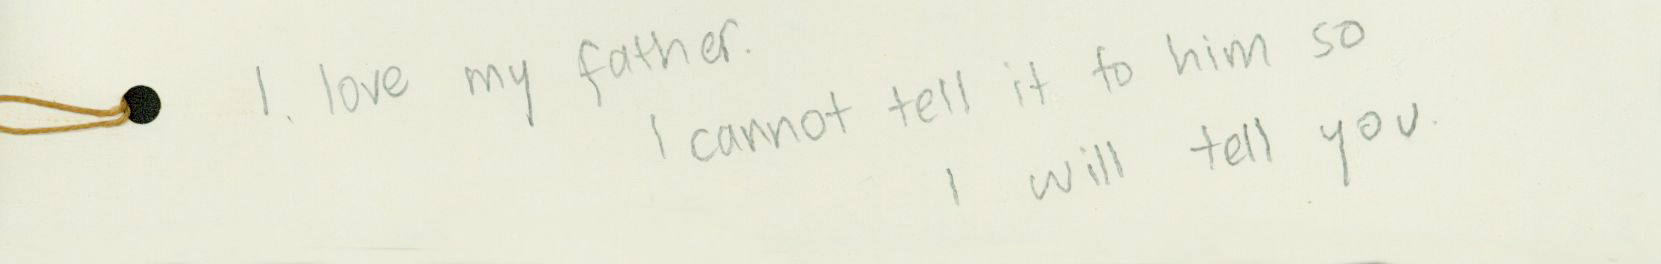 I. love my father.
I cannot tell it to him so
I will tell you.